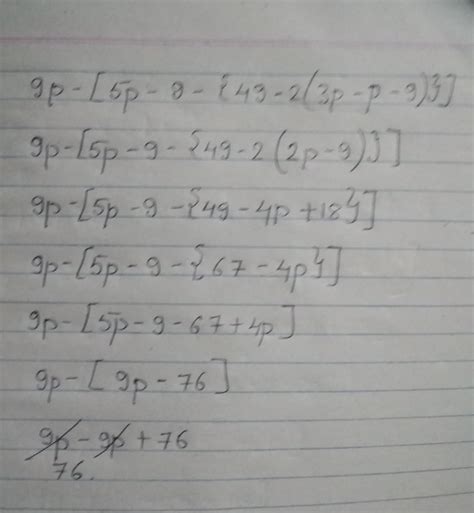 9p-[5p-9-{49-2(3p-p-9)}]
9p-[5p-9-{49-2(2p-9)}]
9p-[5p-9-{49-4p+18}]
9p-[5p-9-{67-4p}]
9p-[5p-9-67+4p]
9p-[9p-76]
9p-9p+76
76.